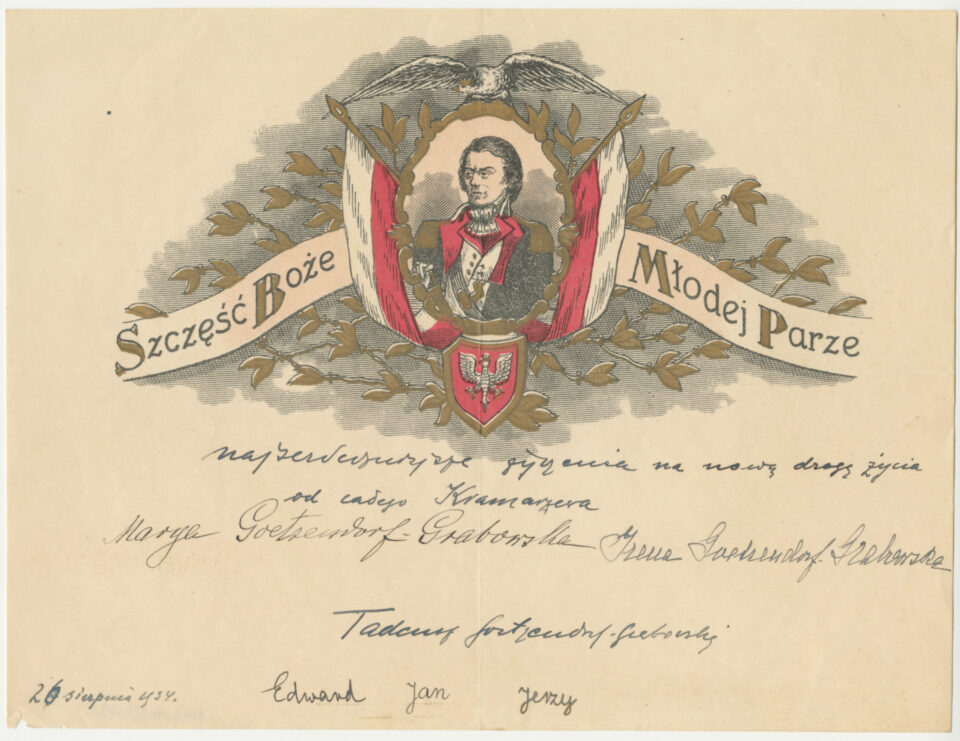 Szczęść Boże Młodej Parze
najserdeczniejsze życzenia na nową drogę życia
od całego Kramarzewa
Marya Goetzendorf-Grabowska Irena Goetzendorf-Grabowska
Tadeusz Goetzendorf-Grabowski
26 sierpnia 1934.
Edward Jan Jerzy